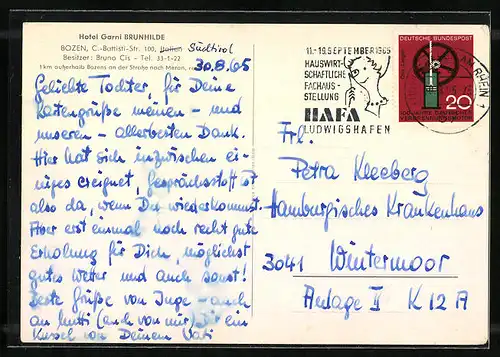 Hotel Garni BRUNHILDE
BOZEN, C.-Battisti-Str. 100, Italien Südtirol
Besitzer: Bruno Cis - Tel. 33-1-22
1 km außerhalb Bozens an der Straße nach Meran,
30.8.65
Geliebte Tochter, für Deine
Kartengrüße meinen - und
unseren - allerbesten Dank.
Hier hat sich inzwischen ei-
niges ereignet, Gesprächsstoff ist
also da, wenn Du wiederkommst.
Aber erst einmal noch recht gute
Erholung für Dich, möglichst
gutes Wetter und auch sonst!
Beste Grüße von Inge - auch
an Mutti (auch von mir) Dir ein
Küssel von Deinem Vati
11.-19. SEPTEMBER 1965
HAUSWIRT-
SCHAFTLICHE
FACHAUS-
STELLUNG
HAFA
LUDWIGSHAFEN
AM RHEIN 1
DEUTSCHE BUNDESPOST
20
Frl.
Petra Kleeberg
Hamburgisches Krankenhaus
3041 Wintermoor
Anlage II K 12 A